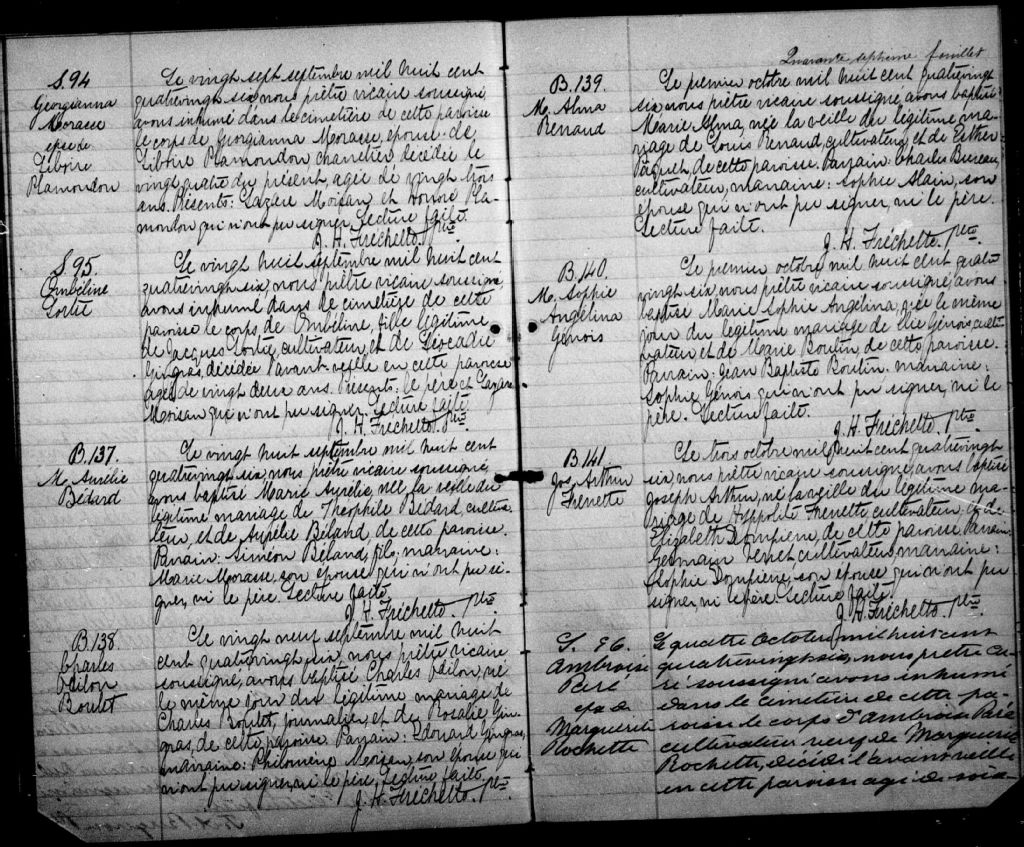 S. 94
Georgianna
Morasse
epse de
Liboire
Plamondon
Le vingt sept septembre mil huit cent
quatrevingt six, nous prêtre vicaire soussigné,
avons inhumé dans le cimetière de cette paroisse
le corps de Georgianna Morasse, épouse de
Liboire Plamondon charretier décédée le
vingt quatre du présent, agée de vingt trois
ans. Présents: Lazare Moisan et Honoré Pla-
mondon qui n'ont pu signer. Lecture faite.
J. H. Fréchette. Ptre
S. 95.
Ombéline
Lortie
Le vingt huit septembre mil huit cent
quatrevingt six, nous prêtre vicaire soussigné
avons inhumé dans le cimetière de cette
paroisse le corps de Ombéline, fille légitime
de Jacques Lortie, cultivateur, et de Léocadie
Gingras, décédée l'avant-veille en cette paroisse
agée de vingt deux ans. Présents: le père et Lazare
Moisan qui n'ont pu signer. Lecture faite.
J. H. Fréchette. Ptre
B. 137.
M. Aurélie
Bédard
Le vingt huit septembre mil huit cent
quatrevingt six, nous prêtre vicaire soussigné,
avons baptisé Marie Aurélie, née la veille du
légitime mariage de Théophile Bédard, cultiva-
teur, et de Aurélie Béland, de cette paroisse.
Parrain: Siméon Béland, fils, marraine:
Marie Morasse, son épouse qui n'ont pu si-
gner, ni le père. Lecture faite.
J. H. Fréchette. Ptre
B. 138
Charles
Odilon
Boulet
Le vingt neuf septembre mil huit
cent quatrevingt six, nous prêtre vicaire
soussigné, avons baptisé Charles Odilon, né
le même jour du légitime mariage de
Charles Boulet, journalier, et de Rosalie Gin-
gras, de cette paroisse. Parrain: Edouard Gingras,
marraine: Philomène Moisan, son épouse qui
n'ont pu signer, ni le père. Lecture faite.
J. H. Fréchette. Ptre
Quarante septième feuillet
B. 139.
M. Alma
Renaud
Le premier octobre mil huit cent quatrevingt
six, nous prêtre vicaire soussigné, avons baptisé
Marie Alma, née la veille du légitime ma-
riage de Louis Renaud, cultivateur, et de Esther
Paquet, de cette paroisse. Parrain: Charles Bureau,
cultivateur, marraine: Sophie Alain, son
épouse qui n'ont pu signer, ni le père.
Lecture faite.
J. H. Fréchette. Ptre
B. 140.
M. Sophie
Angélina
Génois
Le premier octobre mil huit cent quatre
vingt six, nous prêtre vicaire soussigné, avons
baptisé Marie Sophie Angelina, née le même
jour du légitime mariage de Elie Génois, culti-
vateur, et de Marie Boutin de cette paroisse.
Parrain: Jean Baptiste Boutin. marraine:
Sophie Génois qui n'ont pu signer, ni le
père. Lecture faite.
J. H. Fréchette. Ptre
B. 141
Jos. Arthur
Frenette
Le trois octobre mil huit cent quatrevingt
six, nous prêtre vicaire soussigné, avons baptisé
Joseph Arthur, né la veille du légitime ma-
riage de Hyppolite Frenette cultivateur, et de
Elizabeth Dompierre, de cette paroisse. Parrain:
Germain cultivateur marraine:
Sophie Dompierre, son épouse qui n'ont pu
signer, ni le père. Lecture faite.
J. H. Fréchette. Ptre
S. 96.
Ambroise
Paré
épx de
Marguerite
Rochette
Le quatre Octobre, mil huit cent
quatrevingt six, nous prêtre cu-
ré soussigné avons inhumé
dans le cimetière de cette pa-
roisse le corps d'Ambroise Paré
cultivateur veuf de Marguerite
Rochette, décédé l'avant veille
en cette paroisse agé de soix-